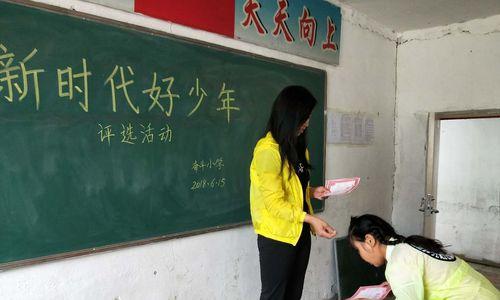 天天向上
新时代好少年
评选活动
奋斗小学
2018.6.15